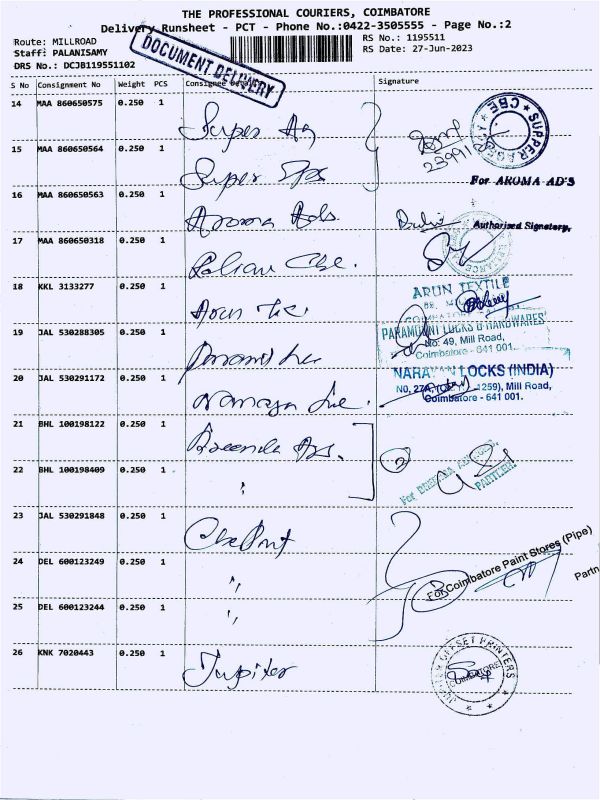 THE PROFESSIONAL COURIERS, COIMBATORE
Delivery Runsheet - PCT - Phone No.:0422-3505555 - Page No.:2
Route: MILLROAD
RS No.: 1195511
Staff: PALANISAMY
RS Date: 27-Jun-2023
DRS No.: DCJB119551102
DOCUMENT DELIVERY
S No Consignment No Weight PCS Consignee Signature
14 MAA 860650575 0.250 1 Super
15 MAA 860650564 0.250 1 Super
SUPPER AGENCY CBE
For AROMA AD'S
16 MAA 860650563 0.250 1 Aroma Ads.
Authorised Signatory.
17 MAA 860650318 0.250 1 Cbe.
18 KKL 3133277 0.250 1 Arun
ARUN TEXTILE
19 JAL 530288305 0.250 1
PARAMOUNT LOCKS & HARDWARES
No: 49, Mill Road,
Coimbatore - 641 001.
20 JAL 530291172 0.250 1
NARAYAN LOCKS (INDIA)
Mill Road,
Coimbatore - 641 001.
21 BHL 100198122 0.250 1
22 BHL 100198409 0.250 1 "
PARTNER
23 JAL 530291848 0.250 1 Cbe Pnt
24 DEL 600123249 0.250 1 "
For Coimbatore Paint Stores (Pipe)
Partn
25 DEL 600123244 0.250 1 "
26 KNK 7020443 0.250 1 Jupiter
JUPITER OFFSET PRINTERS
COIMBATORE